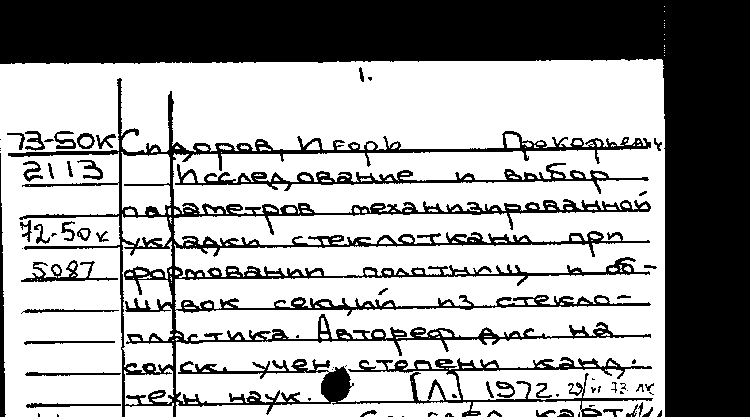 1.
73-50к Сидоров, Игорь Прокофьевич
2113 Исследование и выбор
параметров механизированной
72-50к укладки стеклоткани при
5087 формовании полотнищ и об-
шивок секций из стекло-
пластика. Автореф. дис. на
соиск. учен. степени канд.
техн. наук. [Л.], 1972. 29/VI 73
карт